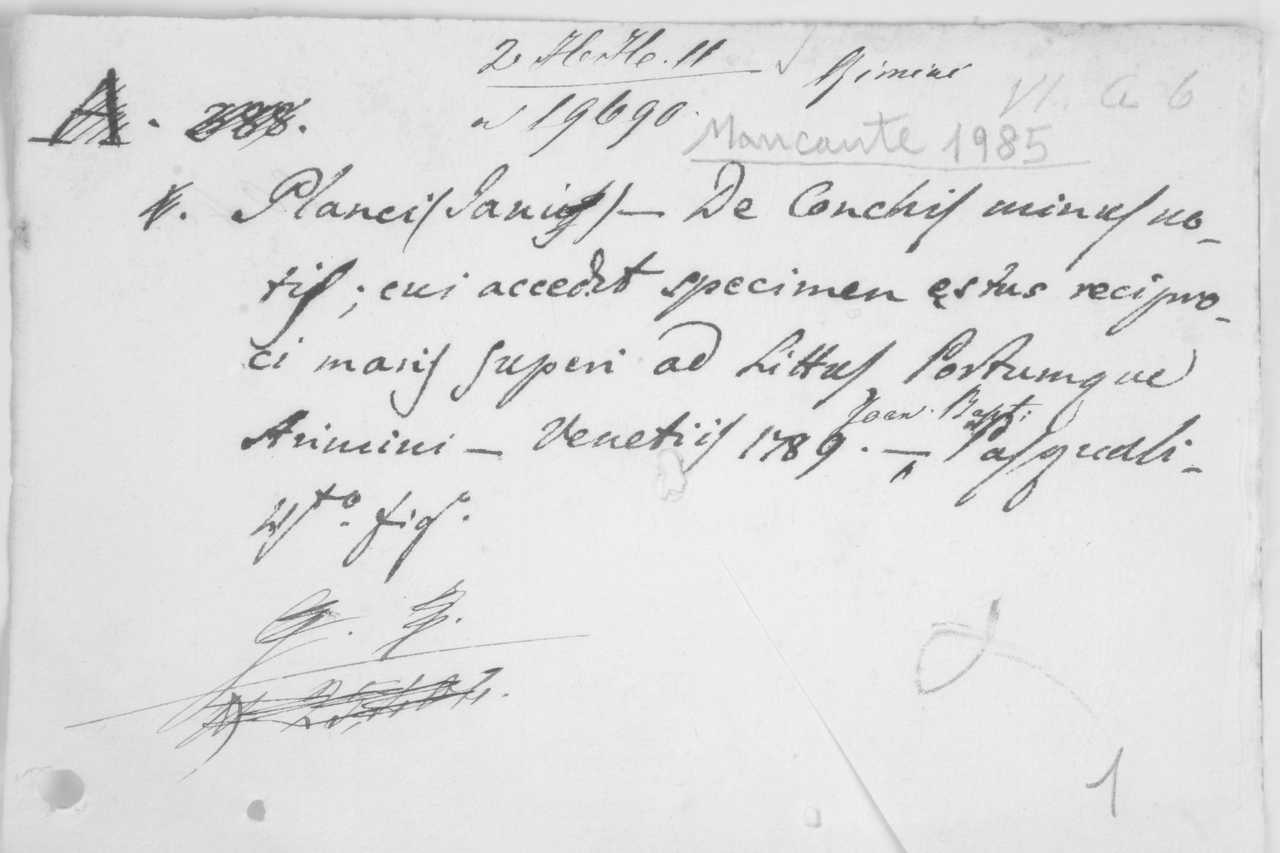 2 Hc. Hc. 11 Rimini
n 19690. VI. a 6
A. 388. Mancante 1985
Planci (Janus) — De Conchis minus no-
tis; cui accedit specimen ęstus recipro-
ci maris superi ad Littus Portumque
Arimini — Venetiis 1789. — Joan. Bapt: Pasquali-
in 4to. figo.
G. B.
1